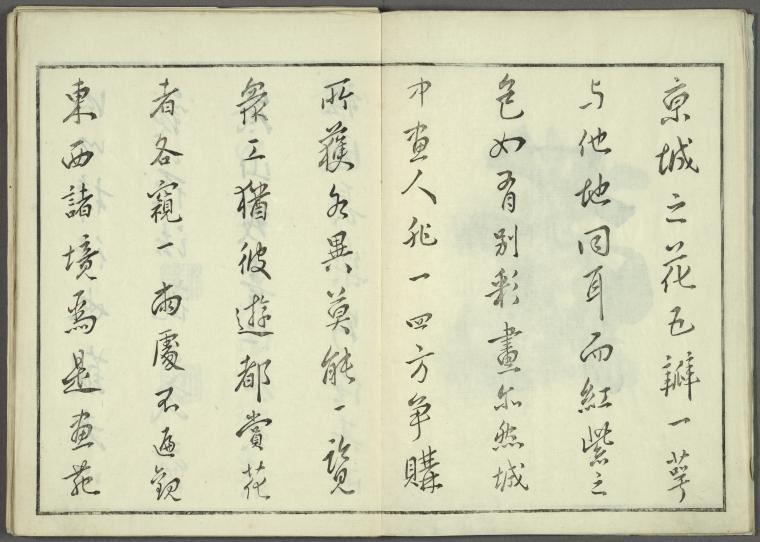 京城之花五瓣一萼
与他地同耳而紅紫之
色如有別彩畫亦然城
中畫人非一四方争購
所獲各異莫能一覧
衆工猶彼遊都賞花
者各窺一両處不遍観
東西諸境焉是画苑